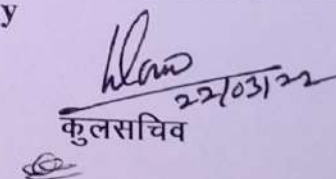 y
22/03/22
कुलसचिव